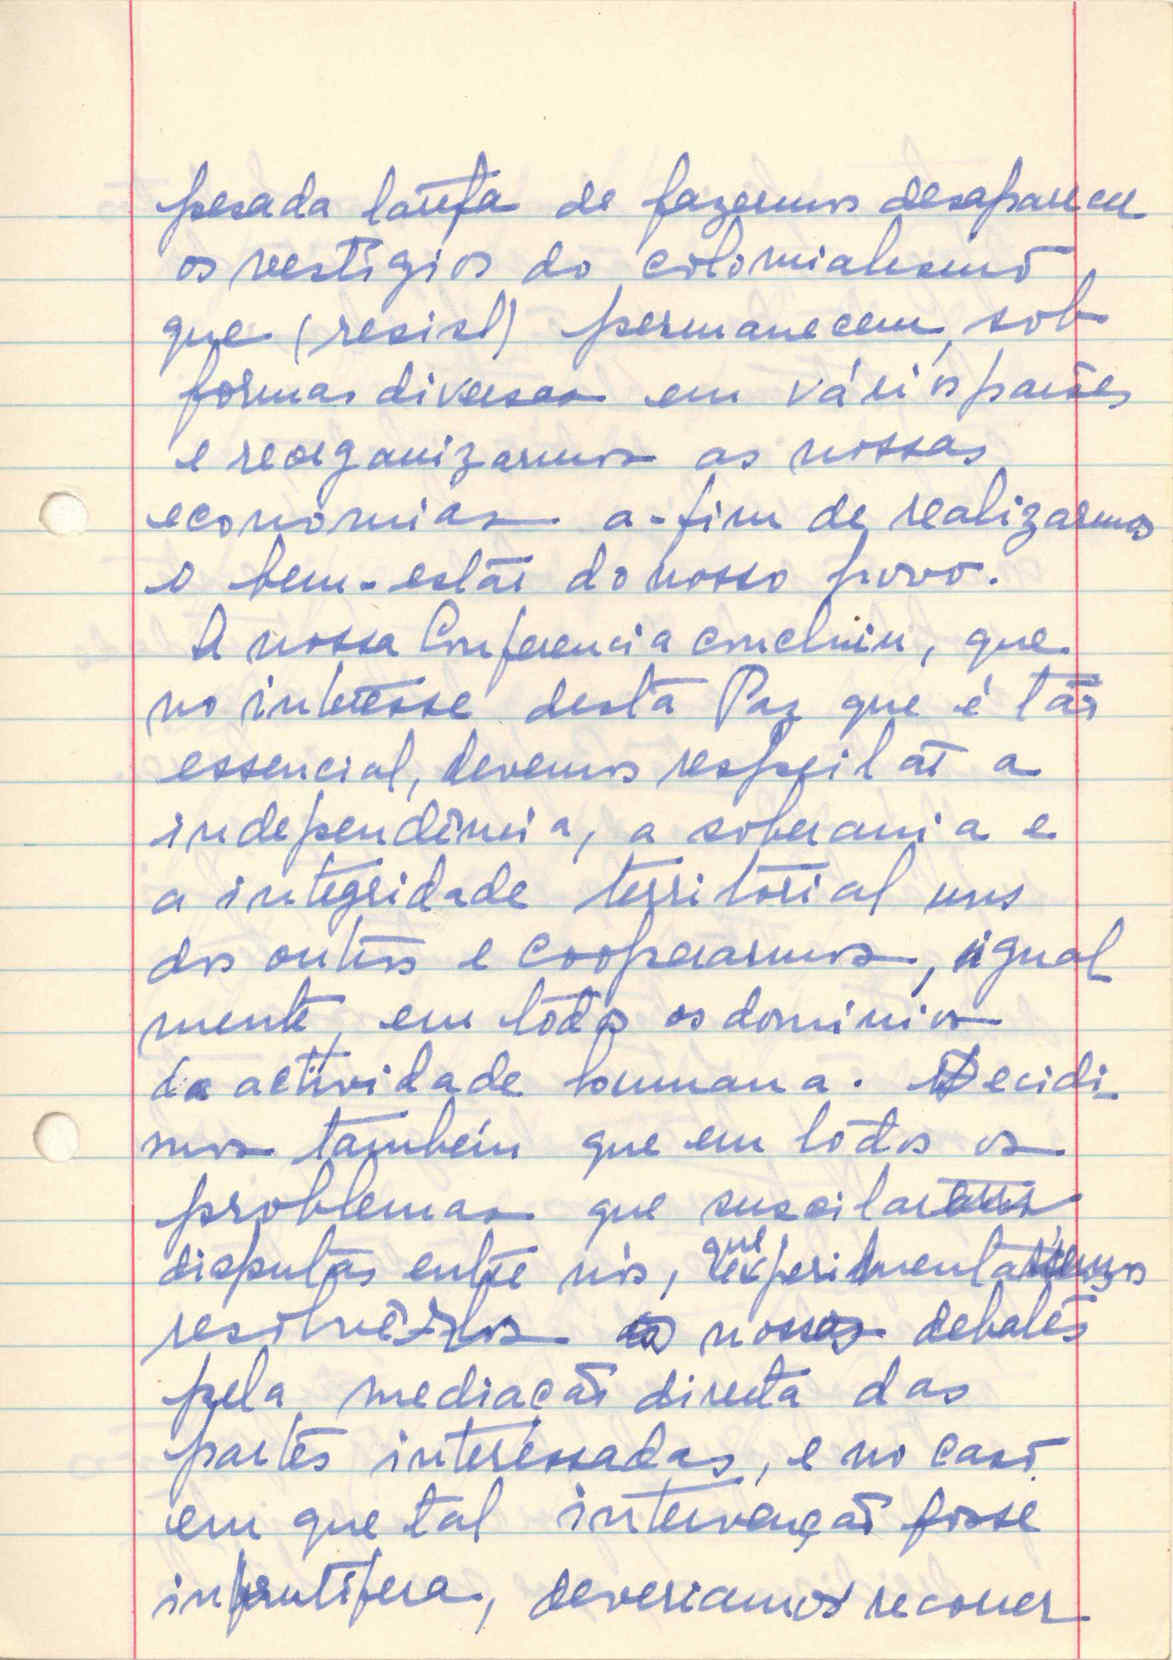 pesada tarefa de fazermos desaparecer
os vestígios do colonialismo
que (resist) permanecem, sob
formas diversas em vários países
e reorganizarmos as nossas
economias a-fim de realizarmos
o bem-estar do nosso povo.
A nossa Conferencia concluiu, que
no interesse desta Paz que é tão
essencial, devemos respeitar a
independência, a soberania e
a integridade territorial uns
dos outros e cooperarmos, igual
mente, em todos os dominios
da actividade humana. Decidi-
mos também que em todos os
problemas que suscitarem
disputas entre nós, que experimentássemos
resolvê-los nossos debates
pela mediação directa das
partes interessadas, e no caso
em que tal intervenção fosse
infrutífera, deveriamos recorrer